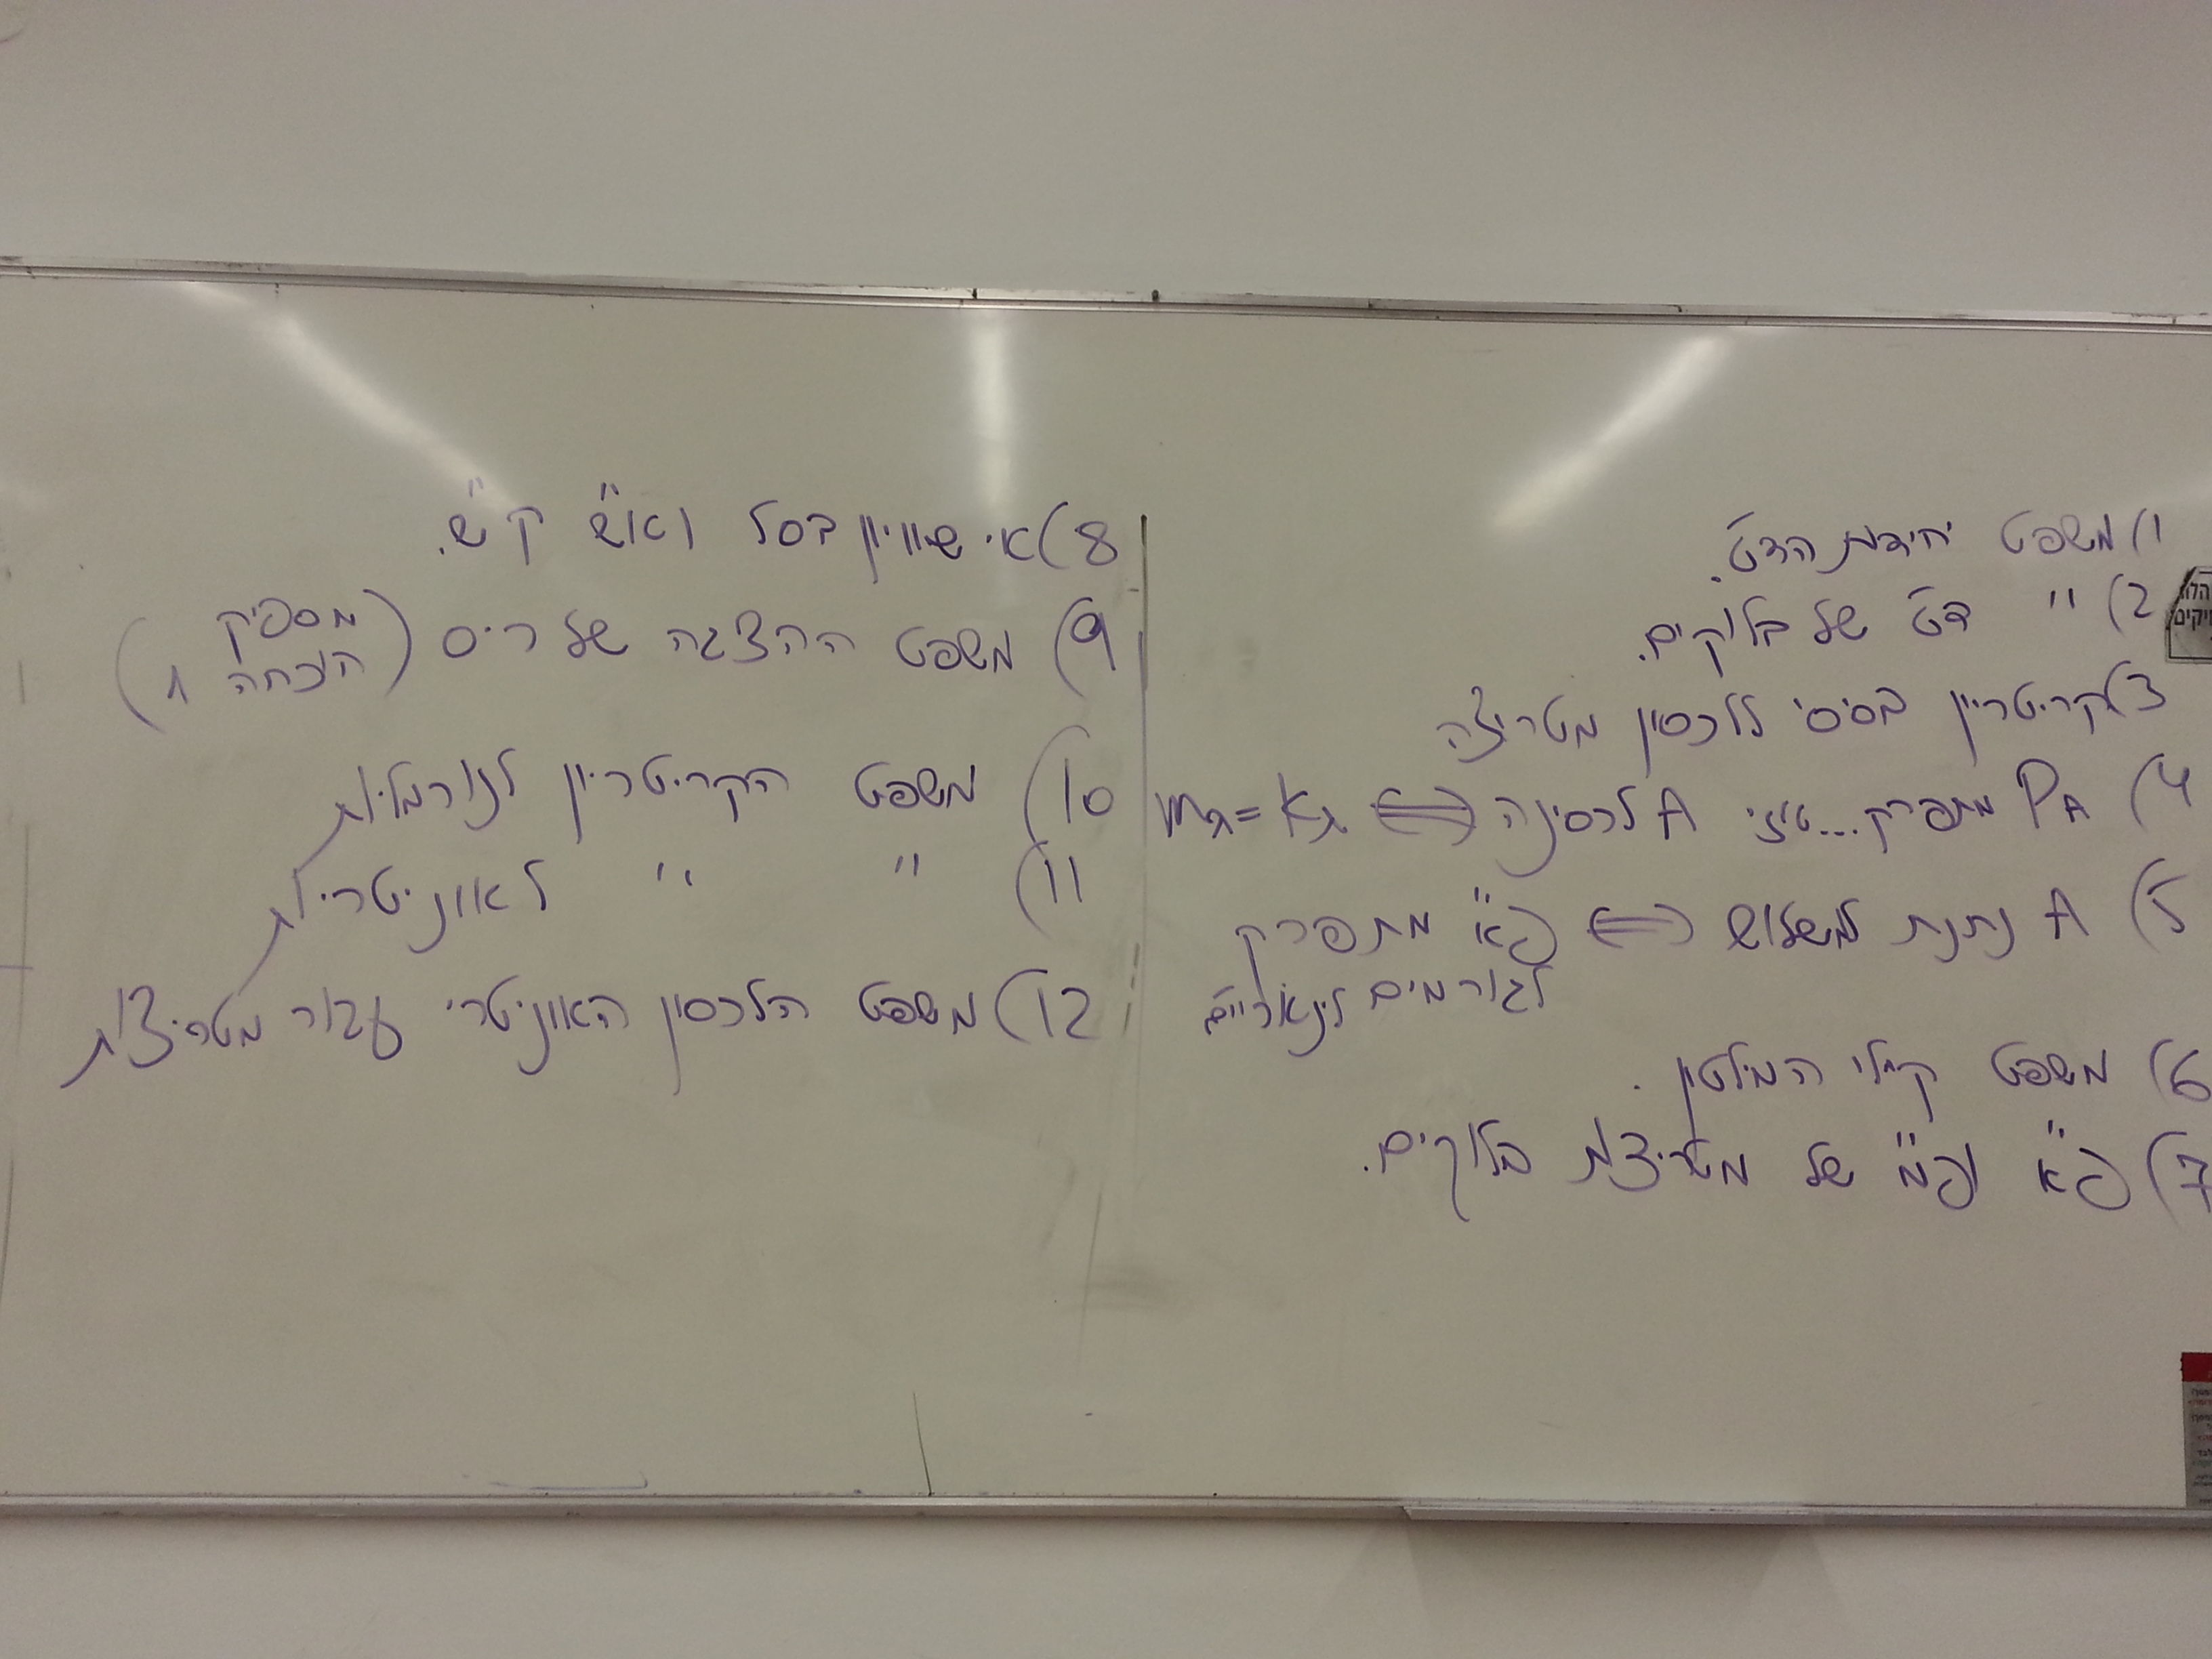 1) משפט יחידות הדט'.
2) " דט' של בלוקים.
3) קריטריון בסיסי ללכסון מטריצה
4) P_A מתפרק... אזי A לכסינה ⟺ m_λ = k_λ
5) A ניתנת לשילוש ⟺ פ"א מתפרק
לגורמים לינאריים
6) משפט קיילי המילטון.
7) פ"א ופ"מ של מטריצת בלוקים.
8) אי שוויון בסל ואי"ש ק"ש.
9) משפט ההצגה של ריס (מספיק
הוכחה 1)
10) משפט הקריטריון לנורמליות
11) " " לאוניטריות
12) משפט הלכסון האוניטרי עבור מטריצות
הלוו
ויקים